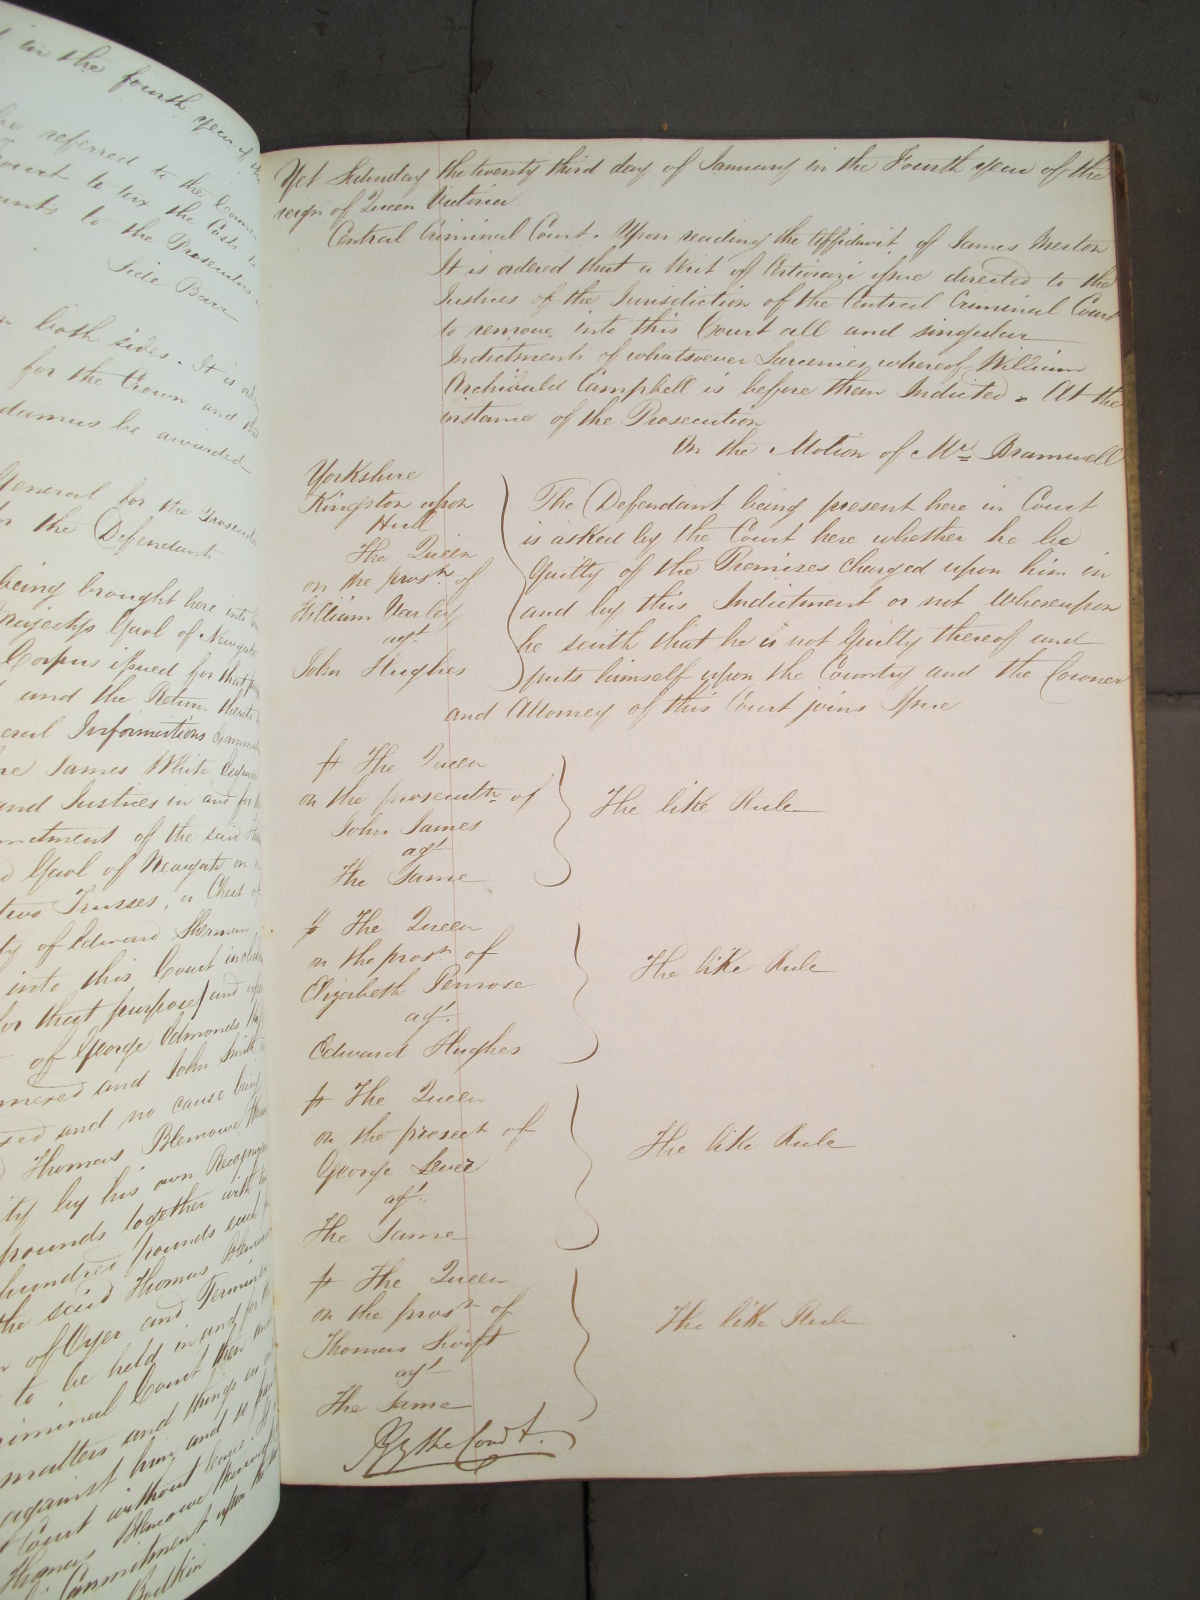 in the fourth year of the
be referred to the Coroner
Court to tax the Costs
to the Prosecutors
Side Barr
both sides. It is
for the Crown and
damus be awarded
General for the
the Defendant
being brought here into
Gaol of Newgate
Corpus issued for that
and the Return thereto
Informations
James White Esquire
and Justices in and for
of the said
Gaol of Newgate on
two Trusses, a Chest of
of Edward Sherman
into this Court
for that purpose) and
of George Edmonds
and John Smith
and no cause being
Thomas Blemowe
by his own
pounds together with
hundred pounds each
the said Thomas
of Oyer and Terminer
to be held in and for
Criminal Court then and
matters and things as
against him and so
Court without leave
Thomas Blemowe
Commitment upon
Bodkin
Yet Saturday the twenty third day of January in the Fourth year of the
reign of Queen Victoria
Central Criminal Court. Upon reading the Affidavit of James Merton
It is ordered that a Writ of Certiorari issue directed to the
Justices of the Jurisdiction of the Central Criminal Court
to remove into this Court all and singular
Indictments of whatsoever Larcenies whereof William
Archibald Campbell is before them Indicted. At the
instance of the Prosecution
On the Motion of Mr Bramwell
Yorkshire
Kingston upon
Hull
The Queen
on the prosn of
William Varley
agt
John Hughes
The Defendant being present here in Court
is asked by the Court here whether he be
Guilty of the Premises charged upon him in
and by this Indictment or not Whereupon
he saith that he is not Guilty thereof and
puts himself upon the Country and the Coroner
and Attorney of this Court joins Issue
The Queen
on the prosecutn of
John James
agt
The Same
The like Rule
The Queen
on the prosn of
Elizabeth Penrose
agt
Edward Hughes
The like Rule
The Queen
on the prosect of
George Lever
agt
The Same
The like Rule
The Queen
on the prosn of
Thomas Swift
agt
The Same
The like Rule
By the Court.